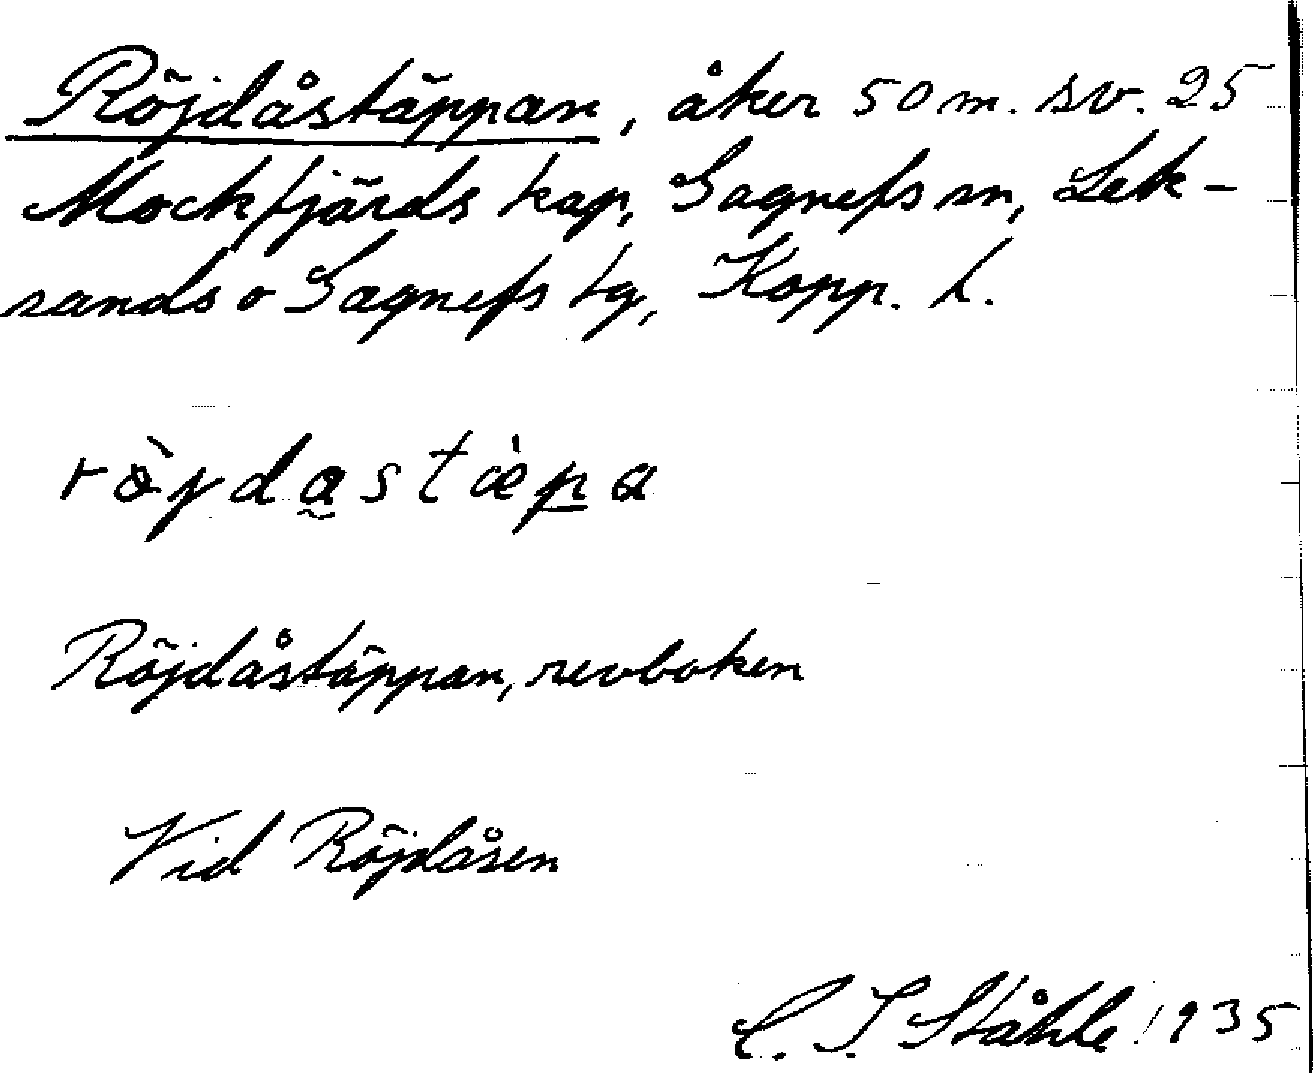 Röjdåstäppan, åker 50 m. sv. 25
Mockfjärds kap, Gagnefs sn, Lek-
sands o Gagnefs tg, Kopp. l.
Röjdåstäppan, revboken
Vid Röjdåsen
C. I. Ståhle 1935